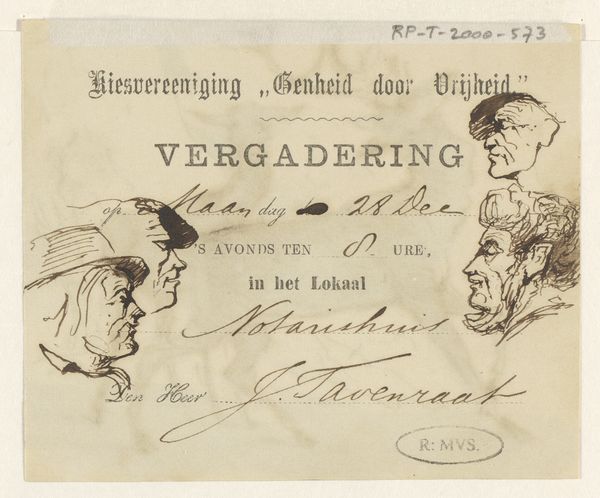 RP-T-2000-573
Kiesvereeniging „Eenheid door Vrijheid."
VERGADERING
op Maandag 28 Dec
'S AVONDS TEN 8 URE,
in het Lokaal
Notarishuis
Den Heer J. Tavenraat
R: MVS.